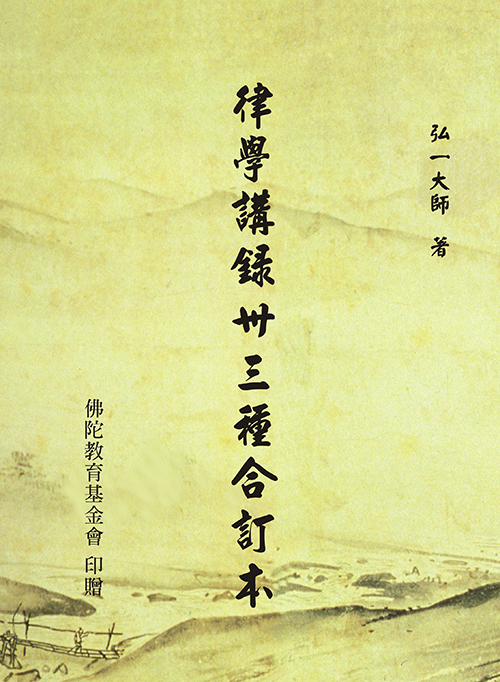 弘一大師 著
律學講録卅三種合訂本
佛陀教育基金會 印贈